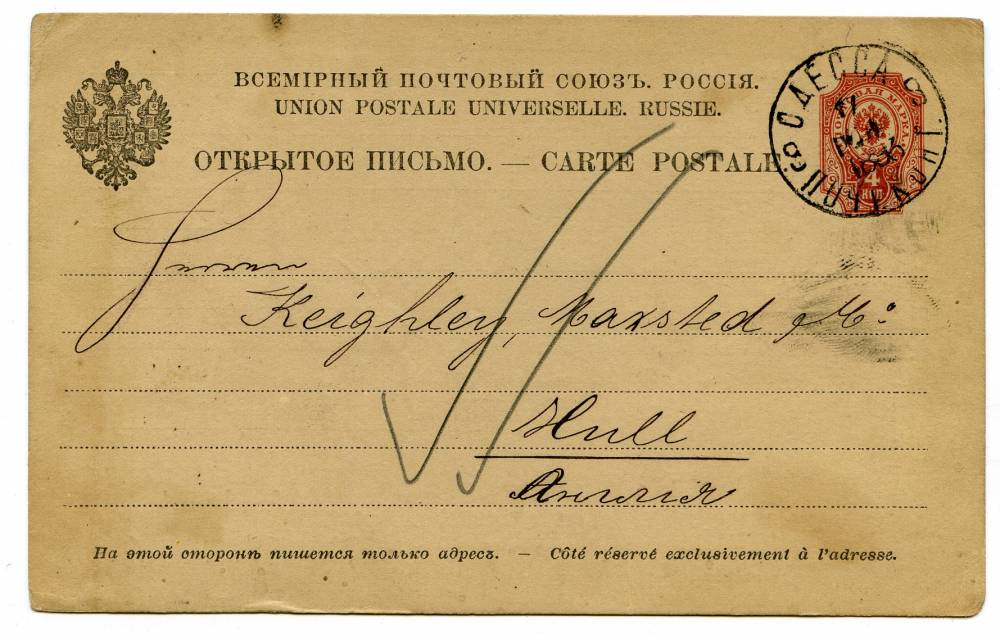 ВСЕМІРНЫЙ ПОЧТОВЫЙ СОЮЗЪ. РОССІЯ.
UNION POSTALE UNIVERSELLE. RUSSIE.
ОТКРЫТОЕ ПИСЬМО. — CARTE POSTALE
ОДЕССА
4
КОП
Herren
Keighley, Maxsted
Hull
Англия
На этой сторонѣ пишется только адресъ. — Côté réservé exclusivement à l'adresse.